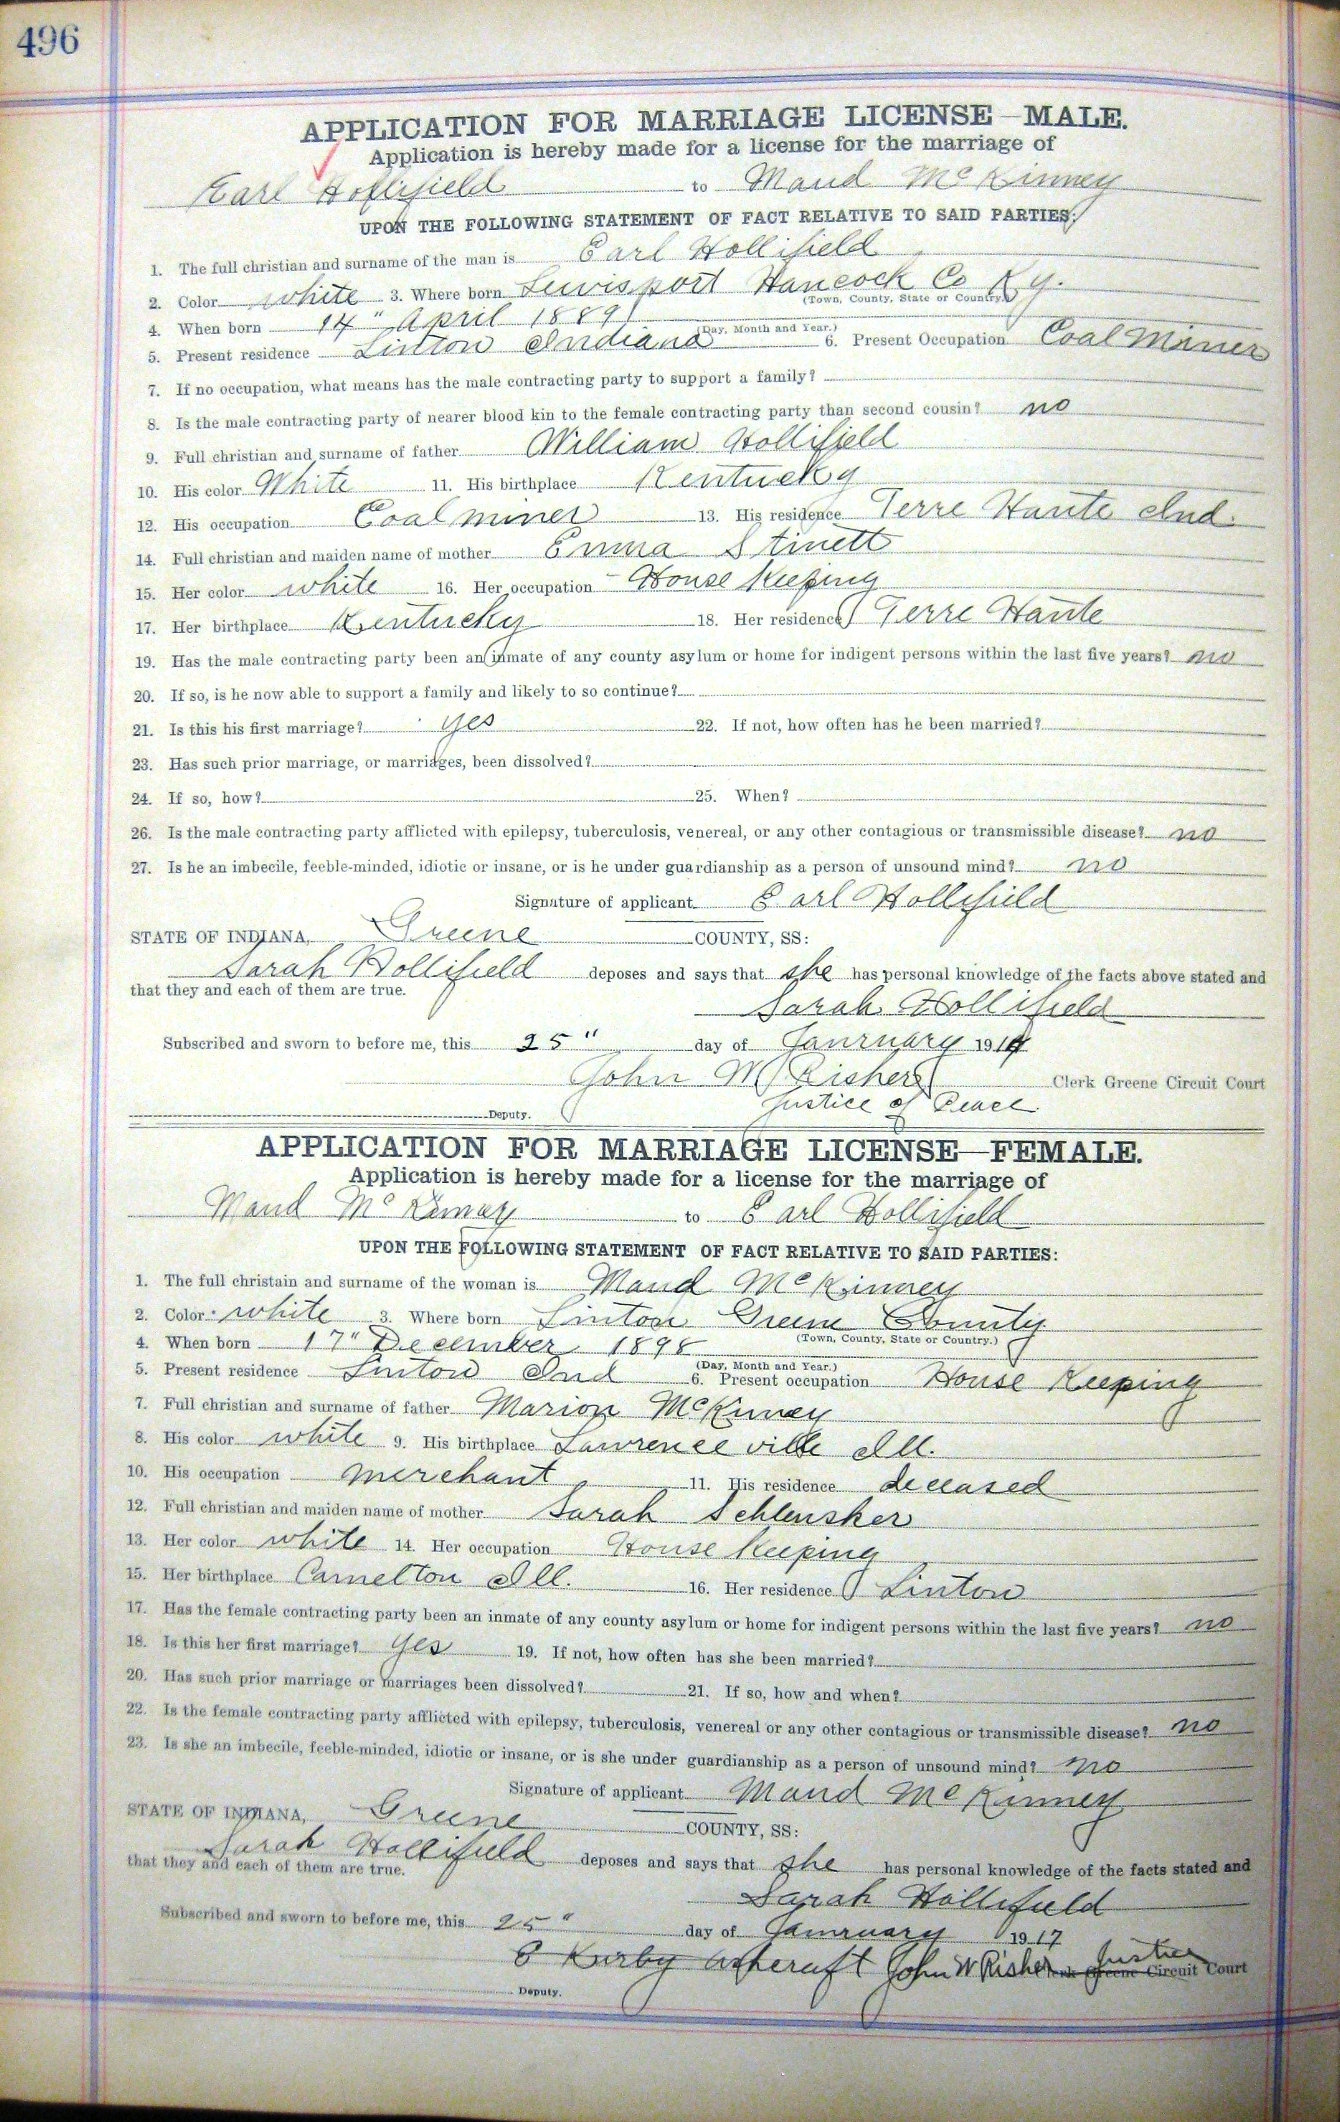 496
APPLICATION FOR MARRIAGE LICENSE—MALE.
Application is hereby made for a license for the marriage of
Earl Hollifield to Maud McKinney
UPON THE FOLLOWING STATEMENT OF FACT RELATIVE TO SAID PARTIES:
1. The full christian and surname of the man is Earl Hollifield
2. Color white 3. Where born Lewisport Hancock Co Ky.
(Town, County, State or Country.)
4. When born 14" April 1889
(Day, Month and Year.)
5. Present residence Linton Indiana 6. Present Occupation Coal Miner
7. If no occupation, what means has the male contracting party to support a family?
8. Is the male contracting party of nearer blood kin to the female contracting party than second cousin? no
9. Full christian and surname of father William Hollifield
10. His color White 11. His birthplace Kentucky
12. His occupation Coal miner 13. His residence Terre Haute Ind.
14. Full christian and maiden name of mother Emma Stinett
15. Her color white 16. Her occupation House Keeping
17. Her birthplace Kentucky 18. Her residence Terre Haute
19. Has the male contracting party been an inmate of any county asylum or home for indigent persons within the last five years? no
20. If so, is he now able to support a family and likely to so continue?
21. Is this his first marriage? yes 22. If not, how often has he been married?
23. Has such prior marriage, or marriages, been dissolved?
24. If so, how? 25. When?
26. Is the male contracting party afflicted with epilepsy, tuberculosis, venereal, or any other contagious or transmissible disease? no
27. Is he an imbecile, feeble-minded, idiotic or insane, or is he under guardianship as a person of unsound mind? no
Signature of applicant Earl Hollifield
STATE OF INDIANA, Greene COUNTY, SS:
Sarah Hollifield deposes and says that she has personal knowledge of the facts above stated and
that they and each of them are true.
Sarah Hollifield
Subscribed and sworn to before me, this 25" day of Janruary 191
John W Risher Clerk Greene Circuit Court
Justice of Peace
Deputy.
APPLICATION FOR MARRIAGE LICENSE—FEMALE.
Application is hereby made for a license for the marriage of
Maud McKinney to Earl Hollifield
UPON THE FOLLOWING STATEMENT OF FACT RELATIVE TO SAID PARTIES:
1. The full christain and surname of the woman is Maud McKinney
2. Color white 3. Where born Linton Greene County
(Town, County, State or Country.)
4. When born 17" December 1898
(Day, Month and Year.)
5. Present residence Linton Ind 6. Present occupation House Keeping
7. Full christian and surname of father Marion McKinney
8. His color white 9. His birthplace Lawrenceville Ill.
10. His occupation merchant 11. His residence deceased
12. Full christian and maiden name of mother Sarah Schlensker
13. Her color white 14. Her occupation House Keeping
15. Her birthplace Camelton Ill. 16. Her residence Linton
17. Has the female contracting party been an inmate of any county asylum or home for indigent persons within the last five years? no
18. Is this her first marriage? yes 19. If not, how often has she been married?
20. Has such prior marriage or marriages been dissolved? 21. If so, how and when?
22. Is the female contracting party afflicted with epilepsy, tuberculosis, venereal or any other contagious or transmissible disease? no
23. Is she an imbecile, feeble-minded, idiotic or insane, or is she under guardianship as a person of unsound mind? no
Signature of applicant Maud McKinney
STATE OF INDIANA, Greene COUNTY, SS:
Sarah Hollifield deposes and says that she has personal knowledge of the facts stated and
that they and each of them are true.
Sarah Hollifield
Subscribed and sworn to before me, this 25" day of Janruary 1917
Kirby Ashcraft John W Risher Justice Clerk Greene Circuit Court
Deputy.